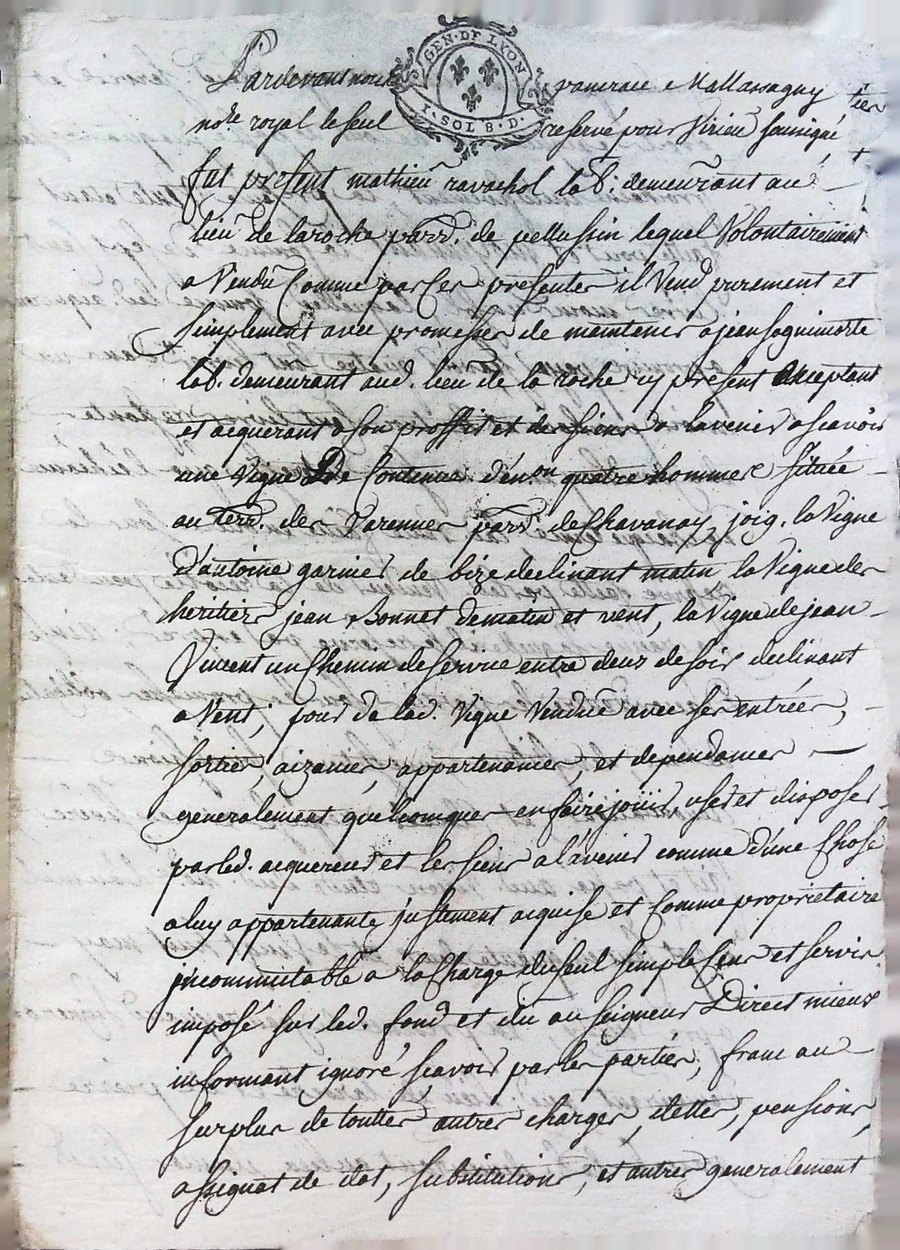 GEN. DE LYON
1. SOL 8. D.
Pardevant nous vanerau Mallassagny
no.re royal le seul reservé pour Virieu soussigné,
fut present mathieu ravachol lab.r demeurant au
lieu de laroche parr.e de pellussin lequel Volontairement
a Vendu Comme par Ces presentes il Vend purement et
simplement avec promesses de maintenir a jean soguimorte
lab.r demeurant aud. lieu de la roche icy present acceptant
et acquerant a son proffit et des siens a lavenir a scavoir
une Vigne De Contenue d'en.on quatre hommes située
au terr.e des Varennes parr.e de Chavanay joig. la Vigne
d'antoine garnier de bize declinant matin la Vigne des
heritiers jean Bonnet de matin et vent, la Vigne de jean
Vincent un Chemin de Service entre deux de soir declinant
a Vent; pour de lad. Vigne Vendue avec ses entrées,
sorties, aizances, appartenances, et dependances
generalement quelconques en faire jouir, user et disposer
par led. acquereur et les siens a l'avenir comme d'une Chose
a luy appartenante justement acquise et Comme proprietaire
jncommutable a la Charge du seul simple Cens et servis
imposé sur led. fond et du au seigneur Direct mieux
informant ignoré scavoir par les parties, franc au
surplus de touttes autres charges, dettes, pensions,
assignat de dot, substitutions, et autres generalement